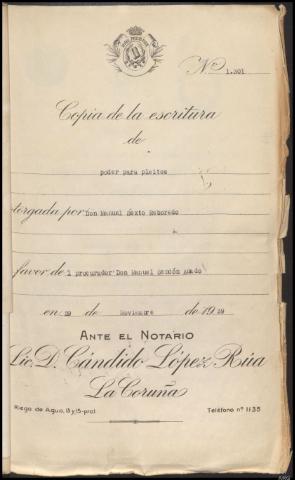 Nº 1.301
Copia de la escritura
de
poder para pleitos
otorgada por Don Manuel Sexto Reboredo
a
favor de l procurador Don Manuel Amado
en 29 de Noviembre de 1929
ANTE EL NOTARIO
Lic. D. Cándido López Rúa
La Coruña
Riego de Agua, 13 y 15-pral. Teléfono nº 1135